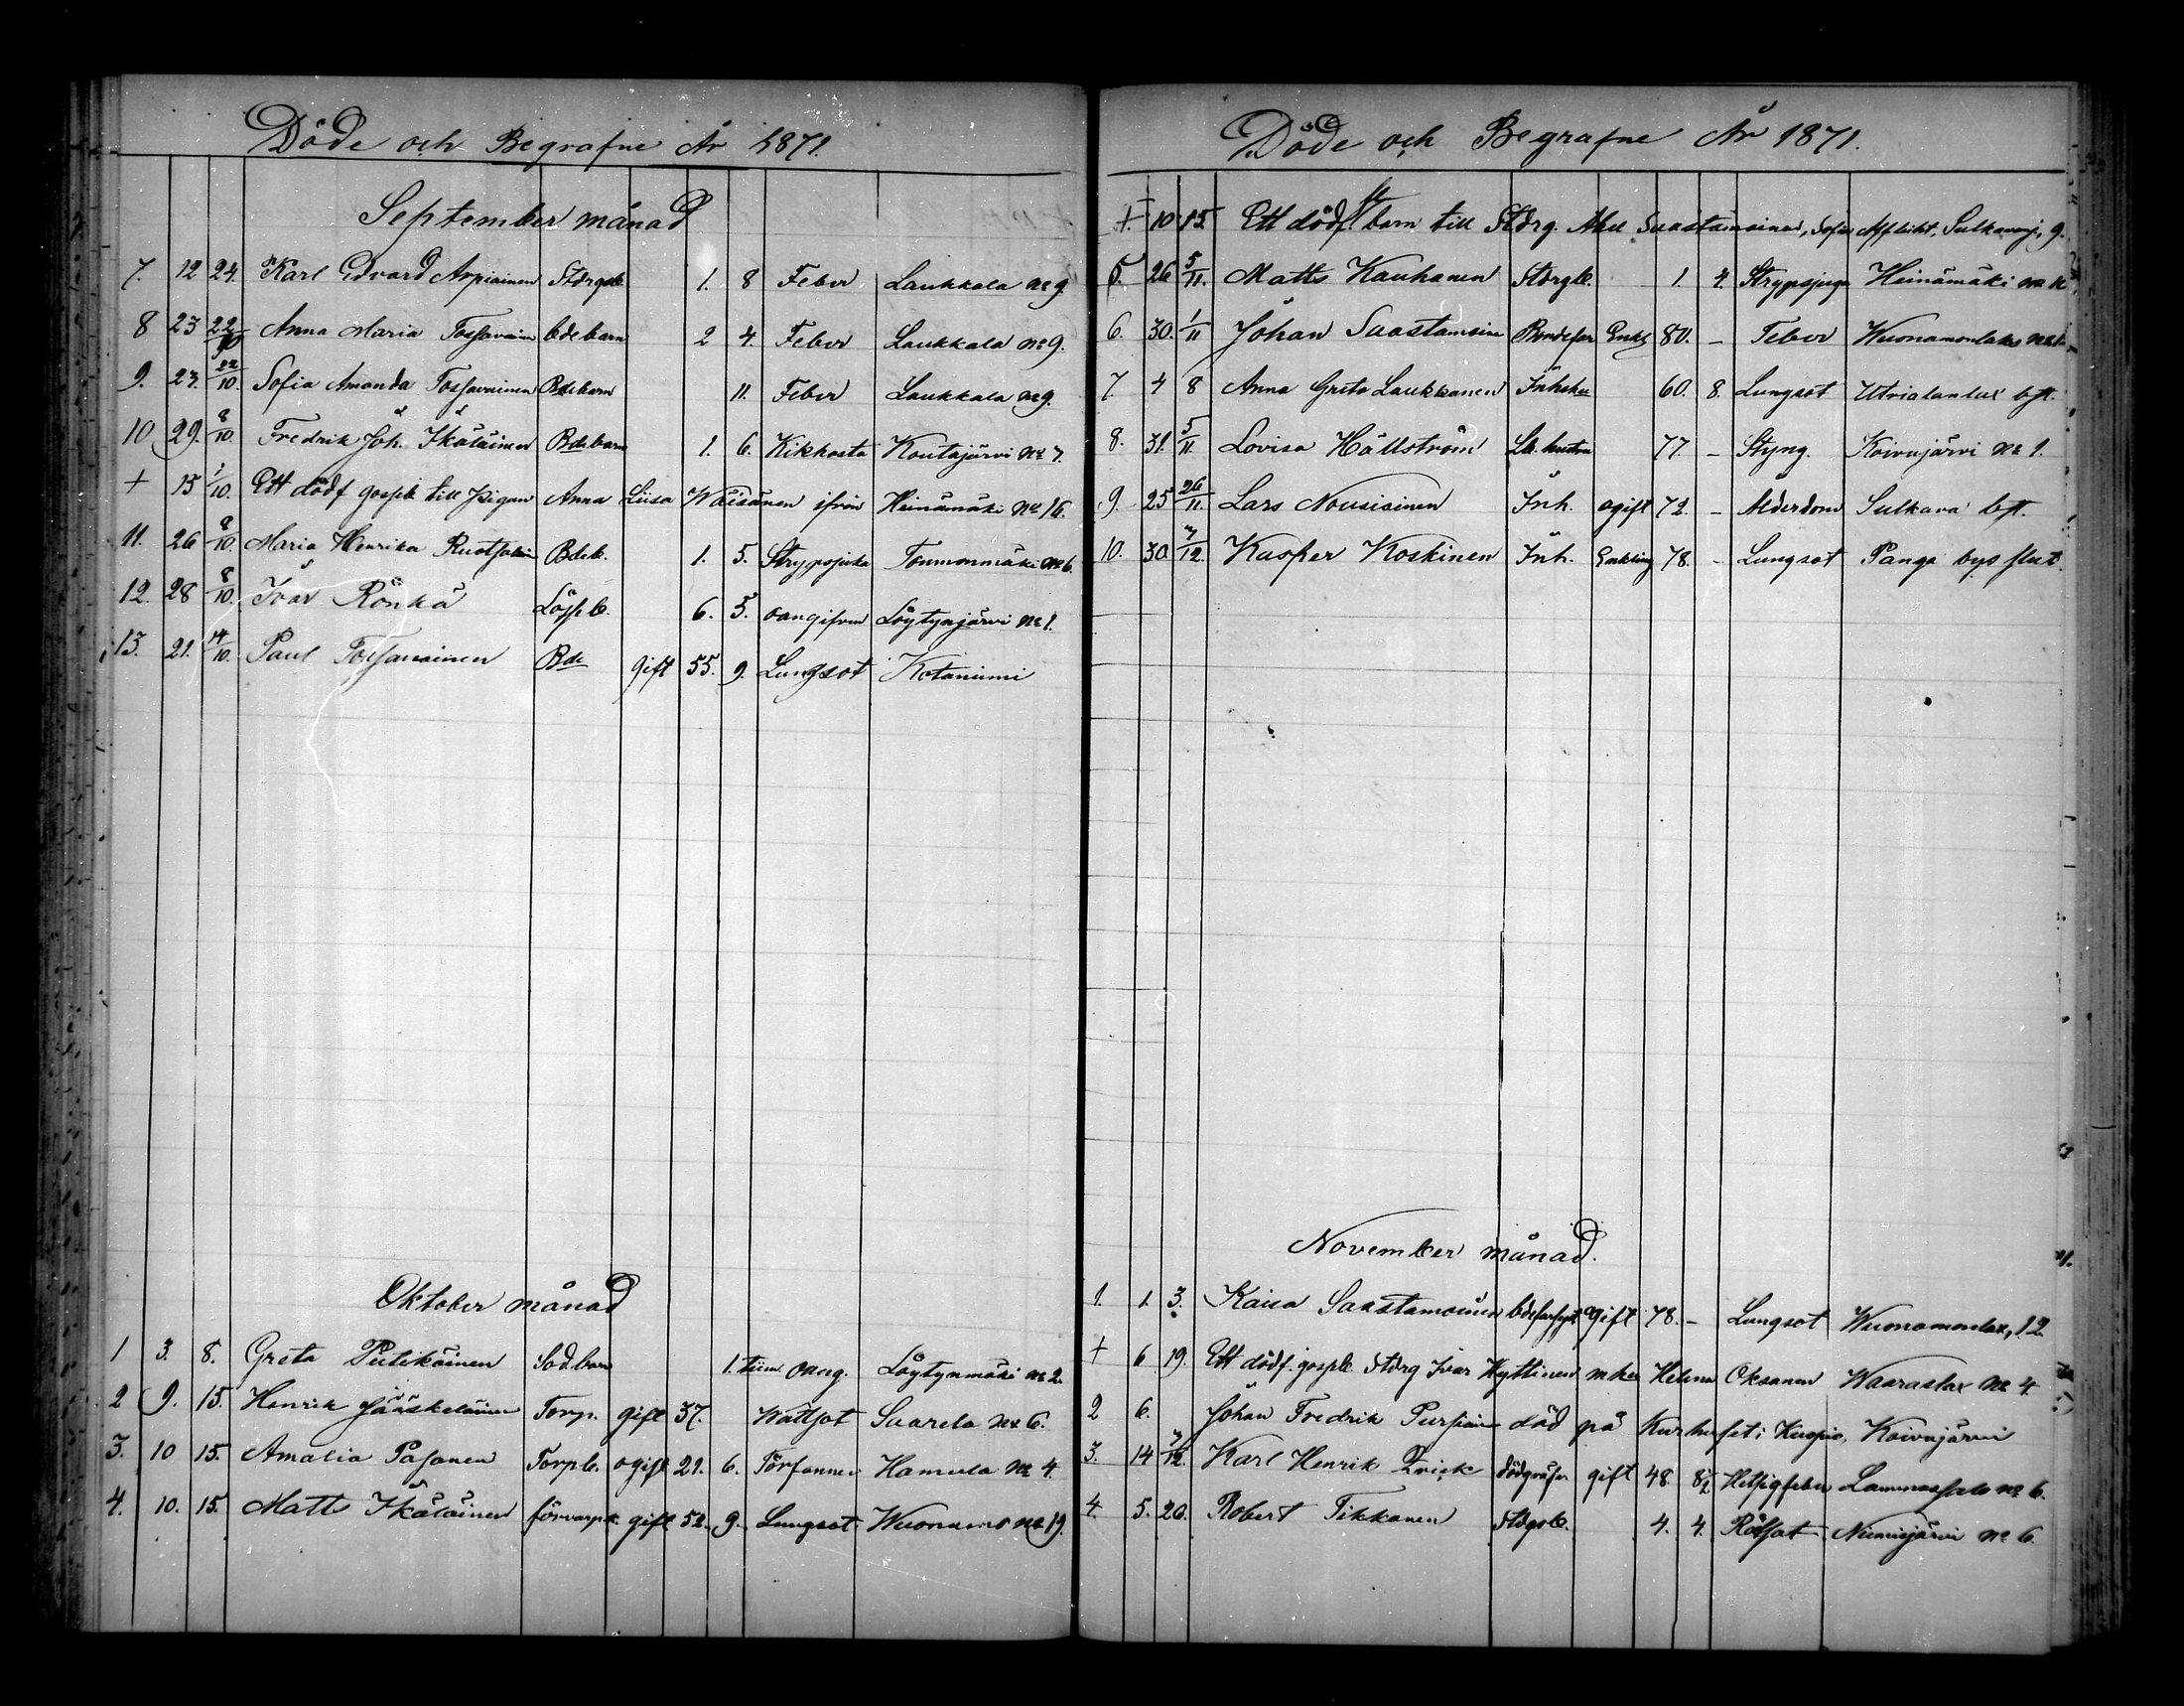 Döde och Begrafne År 1871.
September månad
7. 12 24. Karl Edvard Arpiainen Stdrgsb. 1. 8 Feber Laukkala No 9.
8 23 22/10 Anna Maria Tossavainen bde barn 2 4. Feber Laukkala No 9.
9. 27. 22/10. Sofia Amanda Tossavainen Bdebarn 11. Feber Laukkala No 9.
10 29. 8/10. Fredrik Joh. Ikäläinen Bdebarn 1. 6. Kikhosta Koutajärvi No 7.
+ 15 1/10. Ett dödf gossb till pigan Anna Liisa Wäisänen ifrån Heinämäki No 16.
11. 26 8/10. Maria Henrika Ruotsalain Bdeb. 1. 5. Strypsjuka Tommonmäki No 6.
12. 28 8/10. Ivar Rönkä Lösp b. 6. 5. oangifven Löytynjärvi No 1.
13. 21. 14/10. Paul Tossavainen Bde gift 55. 9. Lungsot Kotaniemi
Oktober månad
1 3. 8. Greta Putikäinen Sod.barn 1. tim oang. Löytynmäki No 2.
2 9. 15. Henrik Jääskeläinen Torp. gift 37. Wattsot Saarela No 6.
3. 10 15. Amalia Pasanen Torpb. ogift 21. 6. Hamula No 4.
4. 10. 15. Matts Ikäläinen gift 52. 9. Lungsot Wuonamo No 19.
Döde och Begrafne År 1871.
+. 10 15. Ett dödf barn till Stdrg. Abel Saastamoinen, Sofia Sulkavanj, 9.
5. 26 5/11. Matts Kauhanen Stdrgb. 1. 4. Strypsjuga Heinämäki No
6. 30. 1/11 Johan Saastamoin Bondefar Enkl 80. – Feber Wuonamonlaks
7. 4 8 Anna Greta Laukkanen Inhshu 60. 8. Lungsot Utrianlax bft.
8. 31. 5/11. Lovisa Hällström hustru 77. – Styng. Koivujärvi No 1.
9. 25 26/11. Lars Nousiainen Inh. ogift 72. – Ålderdom Sulkava bft.
10. 30. 7/12. Kasper Koskinen Inh. Enkling 78. – Lungsot Panga bys
November månad.
1. 1. 3. Kaisa Saastamoinen ogift 78. – Lungsot Wuonamonlax, 12
+ 6 19. Ett dödf. gossb. Stdrg Ivar Hyttinen m hu Helena Oksanen Waaraslax No 4.
2 6. Johan Fredrik Pursiain död på Kurhuset i Kuopio, Koivujärvi
3. 14 7/12. Karl Henrik Qvick dödgräfv. gift 48. 8½ Hetsigfeber Lammassalo No 6.
4. 5. 20. Robert Tikkanen Stdgsb. 4. 4. Rötsot Niinisjärvi No 6.